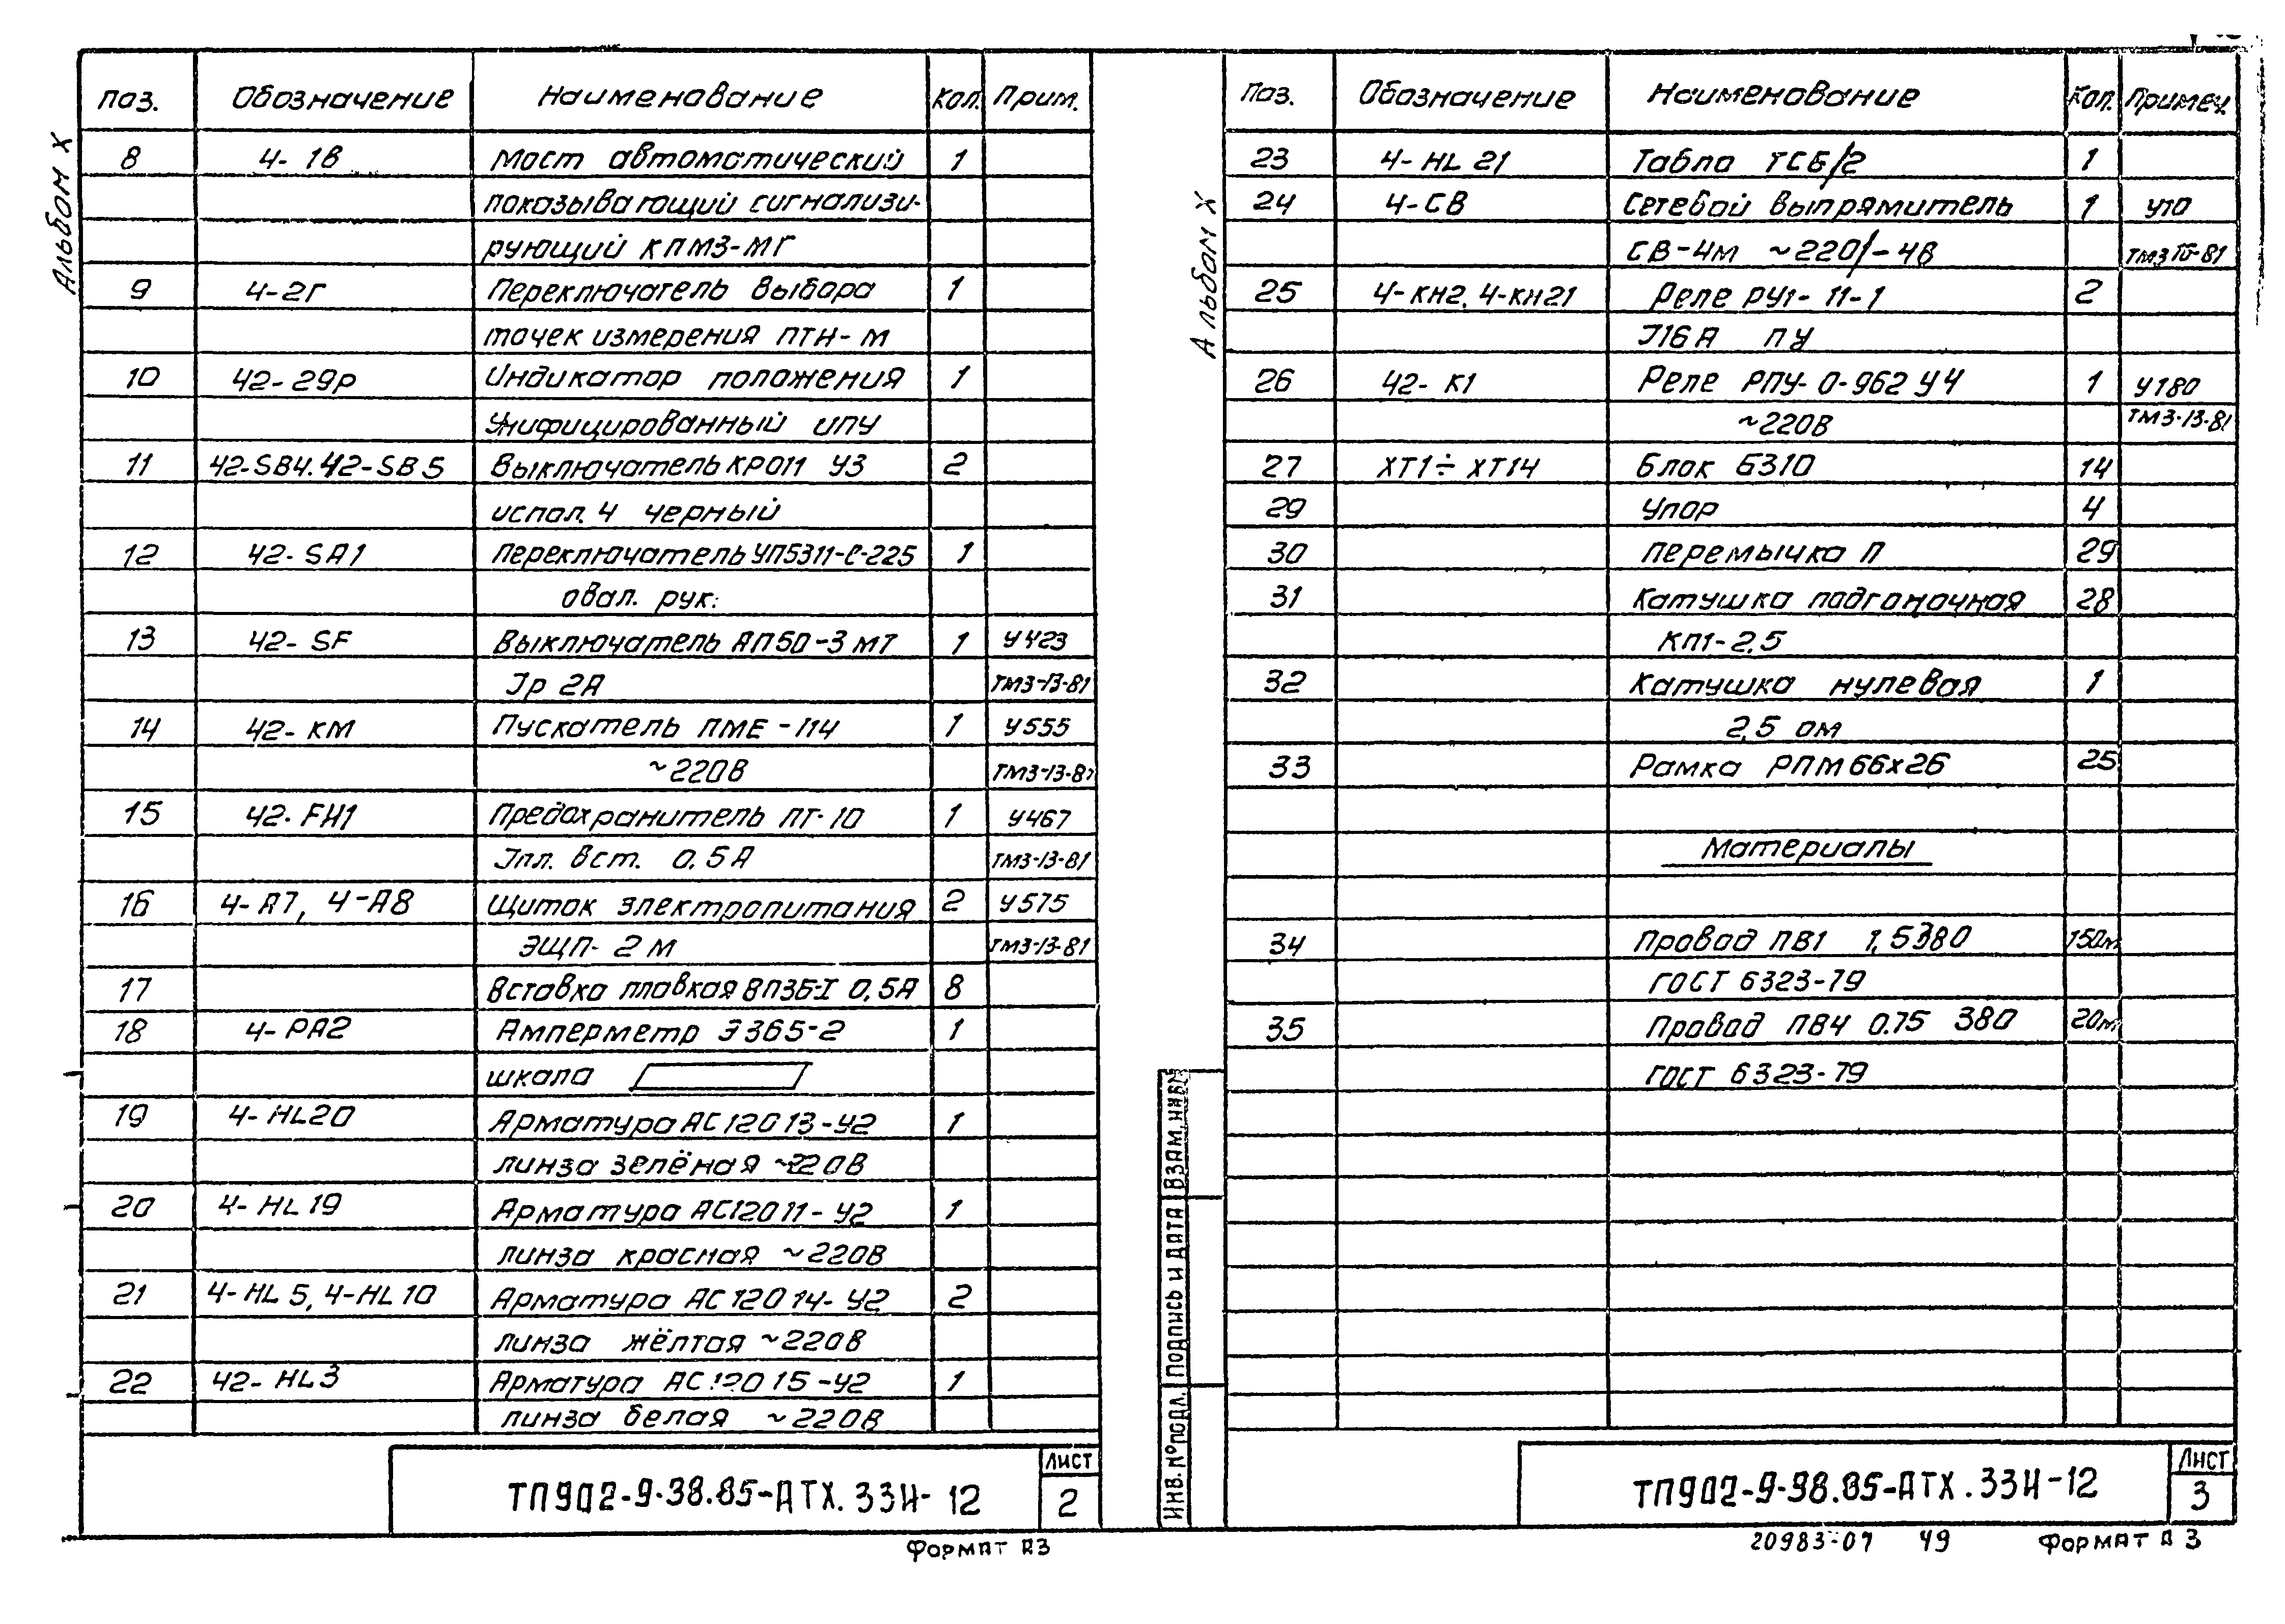 Альбом X
Поз. Обозначение Наименование Кол. Прим.
8 4-1В Мост автоматический 1
показывающий сигнализи-
рующий КПМ3-МГ
9 4-2Г Переключатель выбора 1
точек измерения ПТН-М
10 42-29Р Индикатор положения 1
унифицированный ИПУ
11 42-SB4. 42-SB5 Выключатель КРО11 У3 2
испол. 4 черный
12 42-SA1 Переключатель УП5311-С-225 1
овал. рук.
13 42-SF Выключатель АП50-3 МТ 1 У423
Jр 2А ТМ3-13-81
14 42-КМ Пускатель ПМЕ-114 1 У555
~220В ТМ3-13-81
15 42-FH1 Предохранитель ПТ-10 1 У467
Jпл. вст. 0,5А ТМ3-13-81
16 4-А7, 4-А8 Щиток электропитания 2 У575
ЭЩП-2м ТМ3-13-81
17 Вставка плавкая ВП3Б-I 0,5А 8
18 4-РА2 Амперметр Э365-2 1
шкала
19 4-HL20 Арматура АС12013-У2 1
линза зелёная ~220В
20 4-HL19 Арматура АС12011-У2 1
линза красная ~220В
21 4-HL5, 4-HL10 Арматура АС12014-У2 2
линза жёлтая ~220В
22 42-HL3 Арматура АС12015-У2 1
линза белая ~220В
ТП902-9-38.85-АТХ.33И-12
Лист
2
Формат А3
Альбом X
Поз. Обозначение Наименование Кол. Примеч.
23 4-HL21 Табло ТСБ/2 1
24 4-СВ Сетевой выпрямитель 1 У10
СВ-4м ~220/-4В ТМ3 IV-81
25 4-КН2, 4-КН21 Реле РУ1-11-1 2
J16А ПУ
26 42-К1 Реле РПУ-0-962 У4 1 У180
~220В ТМ3-13-81
27 ХТ1÷ХТ14 Блок Б310 14
29 Упор 4
30 Перемычка П 29
31 Катушка подгоночная 28
КП1-2,5
32 Катушка нулевая 1
2,5 ом
33 Рамка РПМ 66х26 25
Материалы
34 Провод ПВ1 1,5 380 150м
ГОСТ 6323-79
35 Провод ПВ4 0.75 380 20м
ГОСТ 6323-79
ИНВ. № ПОДЛ. ПОДПИСЬ И ДАТА ВЗАМ. ИНВ.
ТП902-9-98.85-АТХ.33И-12
Лист
3
20983-07 49 Формат А3